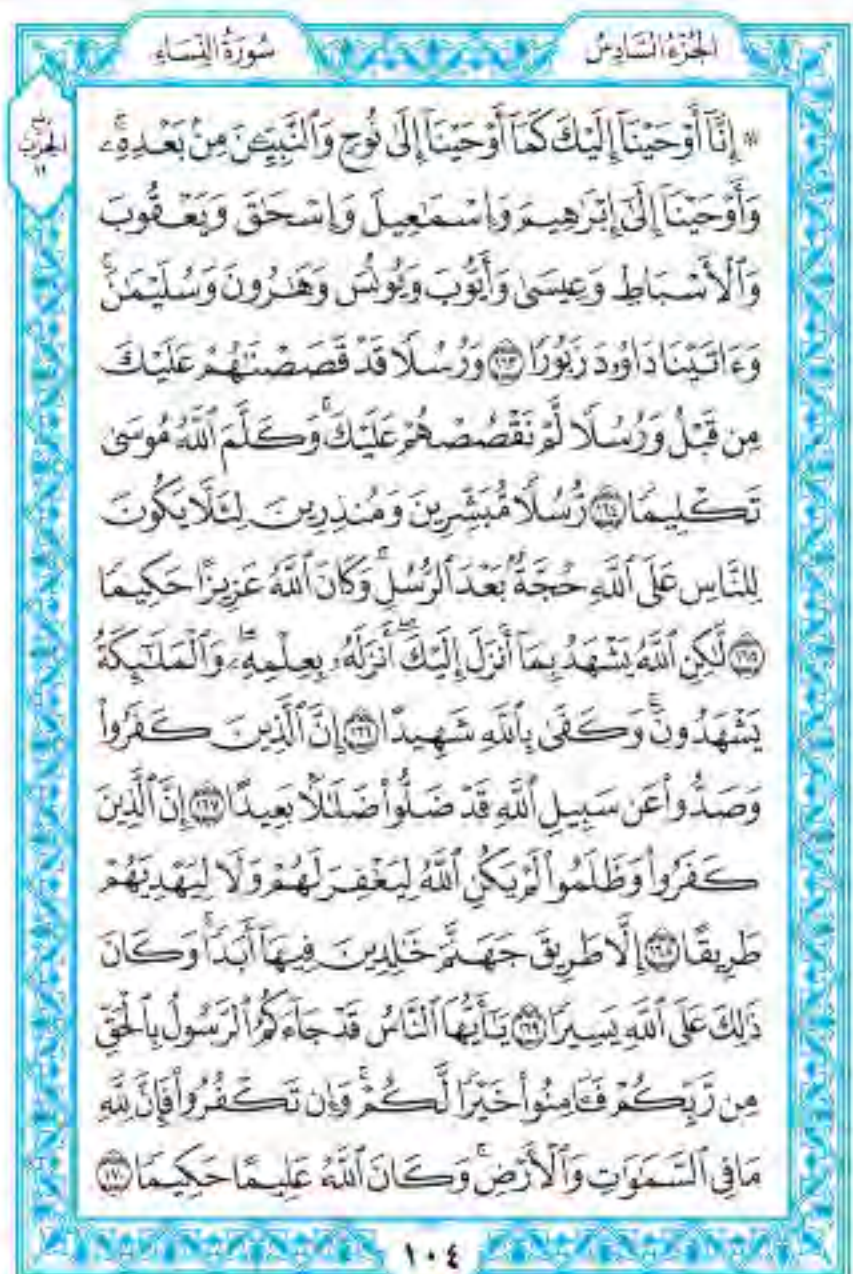 الجُزْءُ السَّادِسُ
سُورَةُ النِّسَاءِ
۞ إِنَّآ أَوْحَيْنَآ إِلَيْكَ كَمَآ أَوْحَيْنَآ إِلَىٰ نُوحٍ وَٱلنَّبِيِّـۧنَ مِنۢ بَعْدِهِۦۚ
وَأَوْحَيْنَآ إِلَىٰٓ إِبْرَٰهِيمَ وَإِسْمَٰعِيلَ وَإِسْحَٰقَ وَيَعْقُوبَ
وَٱلْأَسْبَاطِ وَعِيسَىٰ وَأَيُّوبَ وَيُونُسَ وَهَٰرُونَ وَسُلَيْمَٰنَۚ
وَءَاتَيْنَا دَاوُۥدَ زَبُورًا ١٦٣ وَرُسُلًا قَدْ قَصَصْنَٰهُمْ عَلَيْكَ
مِن قَبْلُ وَرُسُلًا لَّمْ نَقْصُصْهُمْ عَلَيْكَۚ وَكَلَّمَ ٱللَّهُ مُوسَىٰ
تَكْلِيمًا ١٦٤ رُّسُلًا مُّبَشِّرِينَ وَمُنذِرِينَ لِئَلَّا يَكُونَ
لِلنَّاسِ عَلَى ٱللَّهِ حُجَّةٌۢ بَعْدَ ٱلرُّسُلِۚ وَكَانَ ٱللَّهُ عَزِيزًا حَكِيمًا
١٦٥ لَّٰكِنِ ٱللَّهُ يَشْهَدُ بِمَآ أَنزَلَ إِلَيْكَۖ أَنزَلَهُۥ بِعِلْمِهِۦۖ وَٱلْمَلَٰٓئِكَةُ
يَشْهَدُونَۚ وَكَفَىٰ بِٱللَّهِ شَهِيدًا ١٦٦ إِنَّ ٱلَّذِينَ كَفَرُوا۟
وَصَدُّوا۟ عَن سَبِيلِ ٱللَّهِ قَدْ ضَلُّوا۟ ضَلَٰلًۢا بَعِيدًا ١٦٧ إِنَّ ٱلَّذِينَ
كَفَرُوا۟ وَظَلَمُوا۟ لَمْ يَكُنِ ٱللَّهُ لِيَغْفِرَ لَهُمْ وَلَا لِيَهْدِيَهُمْ
طَرِيقًا ١٦٨ إِلَّا طَرِيقَ جَهَنَّمَ خَٰلِدِينَ فِيهَآ أَبَدًاۚ وَكَانَ
ذَٰلِكَ عَلَى ٱللَّهِ يَسِيرًا ١٦٩ يَٰٓأَيُّهَا ٱلنَّاسُ قَدْ جَآءَكُمُ ٱلرَّسُولُ بِٱلْحَقِّ
مِن رَّبِّكُمْ فَـَٔامِنُوا۟ خَيْرًا لَّكُمْۚ وَإِن تَكْفُرُوا۟ فَإِنَّ لِلَّهِ
مَا فِى ٱلسَّمَٰوَٰتِ وَٱلْأَرْضِۚ وَكَانَ ٱللَّهُ عَلِيمًا حَكِيمًا ١٧٠
الحزب
١٠٤